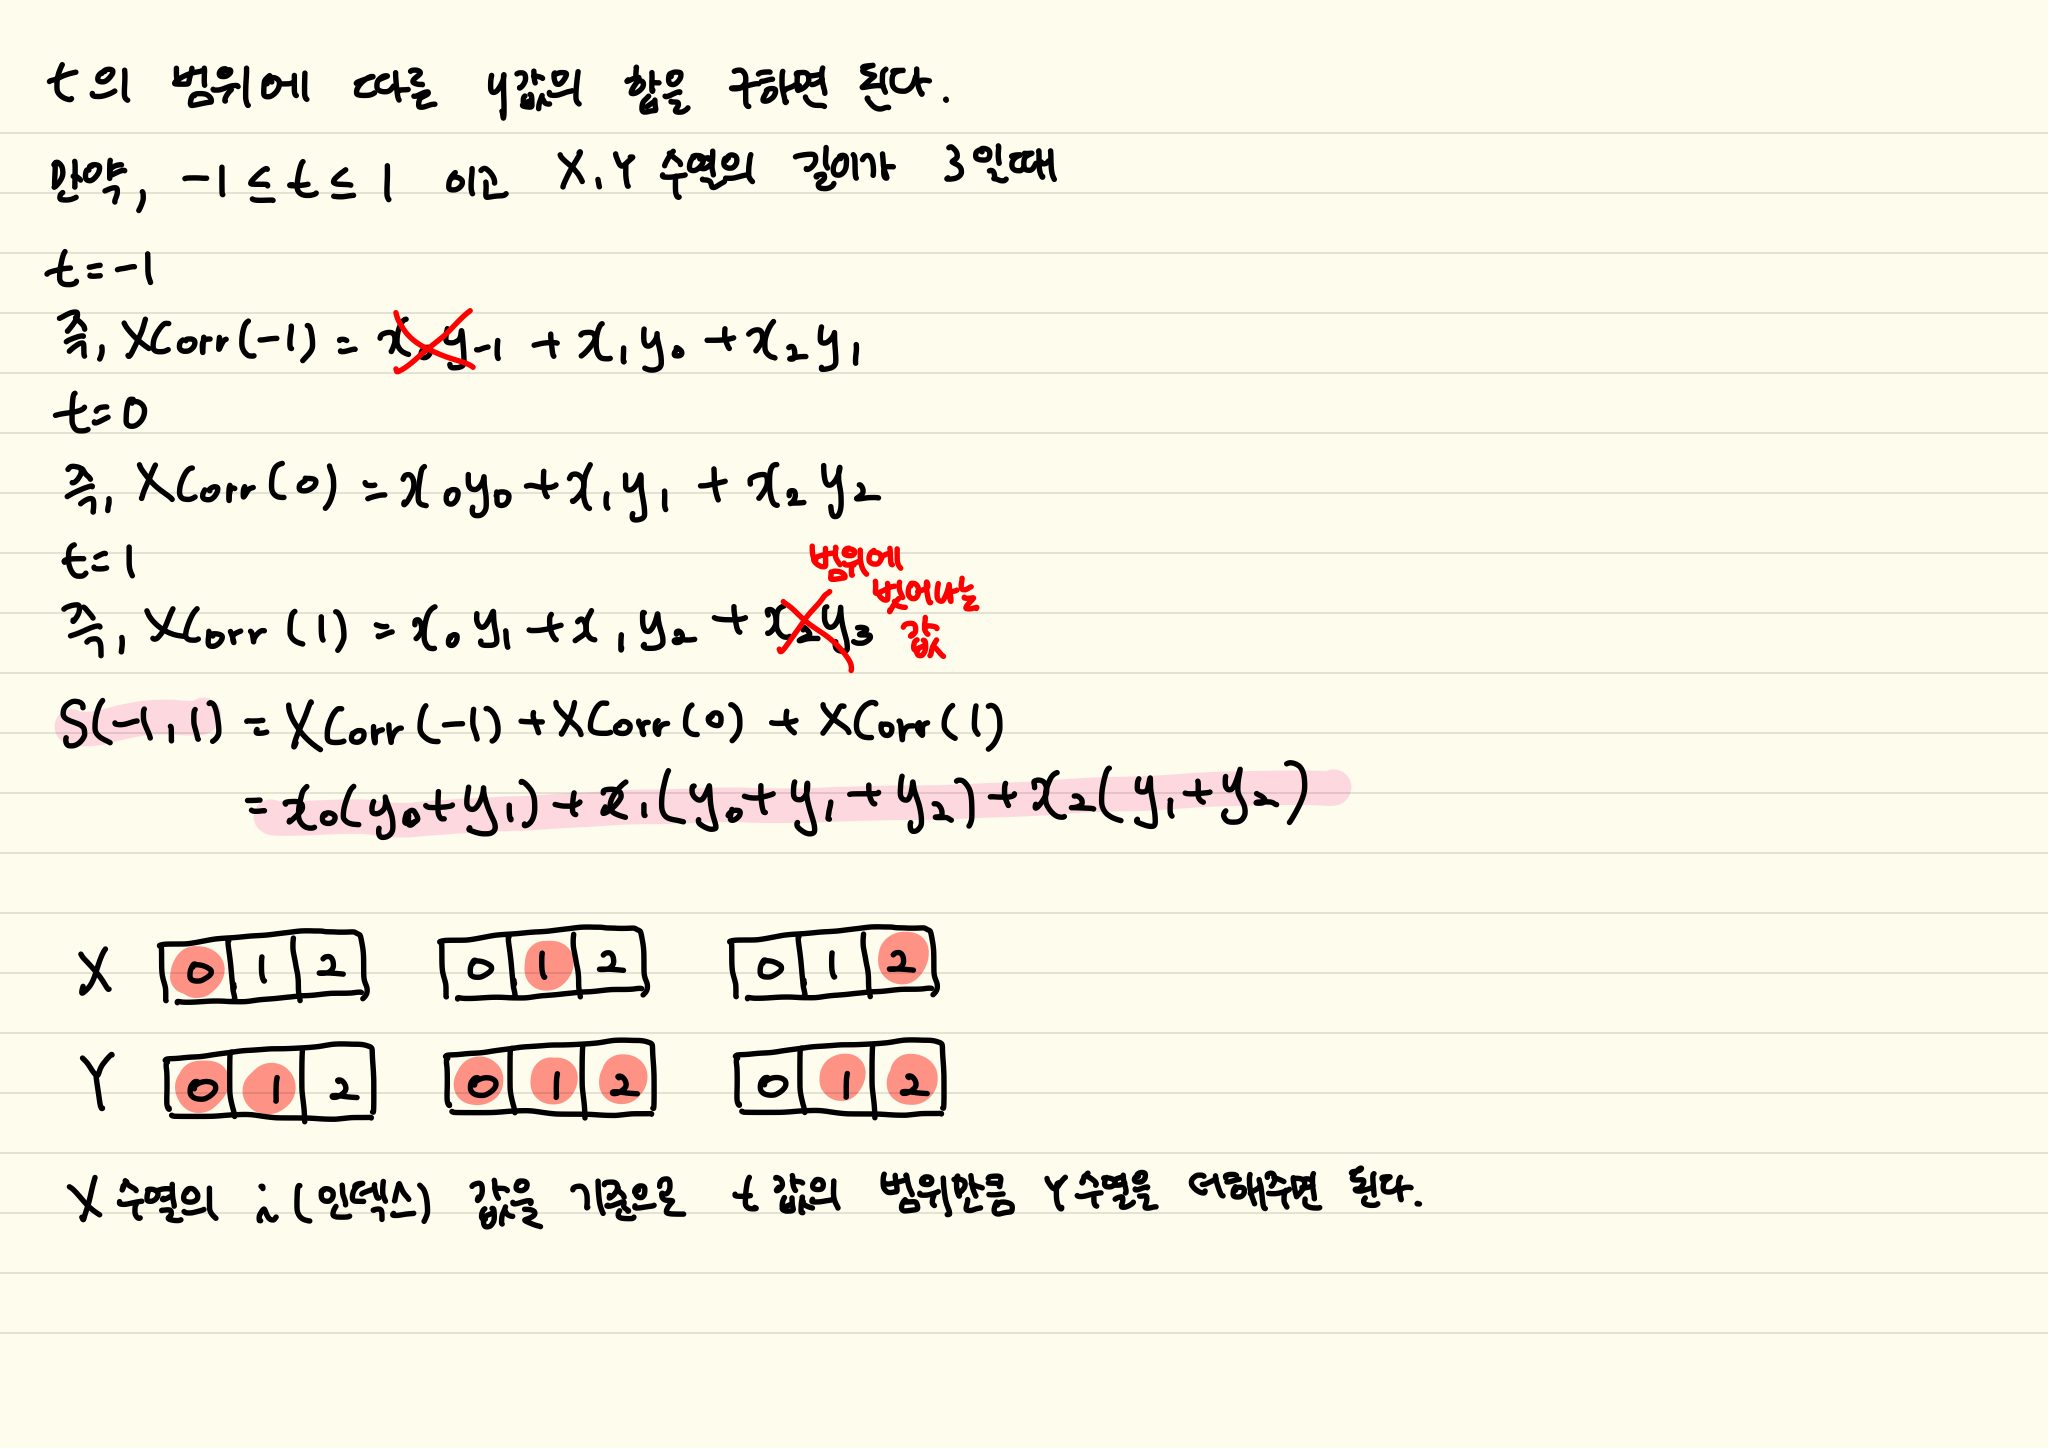 t의 범위에 따를 y값의 합을 구하면 된다.
만약, -1 ≤ t ≤ 1 이고 X, Y 수열의 길이가 3일때
t = -1
즉, XCorr(-1) = x₀y₋₁ + x₁y₀ + x₂y₁
t = 0
즉, XCorr(0) = x₀y₀ + x₁y₁ + x₂y₂
t = 1
즉, XCorr(1) = x₀y₁ + x₁y₂ + x₂y₃
범위에
벗어나는
값
S(-1, 1) = XCorr(-1) + XCorr(0) + XCorr(1)
= x₀(y₀+y₁) + x₁(y₀+y₁+y₂) + x₂(y₁+y₂)
X 0 1 2 0 1 2 0 1 2
Y 0 1 2 0 1 2 0 1 2
X 수열의 i(인덱스) 값을 기준으로 t 값의 범위만큼 Y수열을 더해주면 된다.